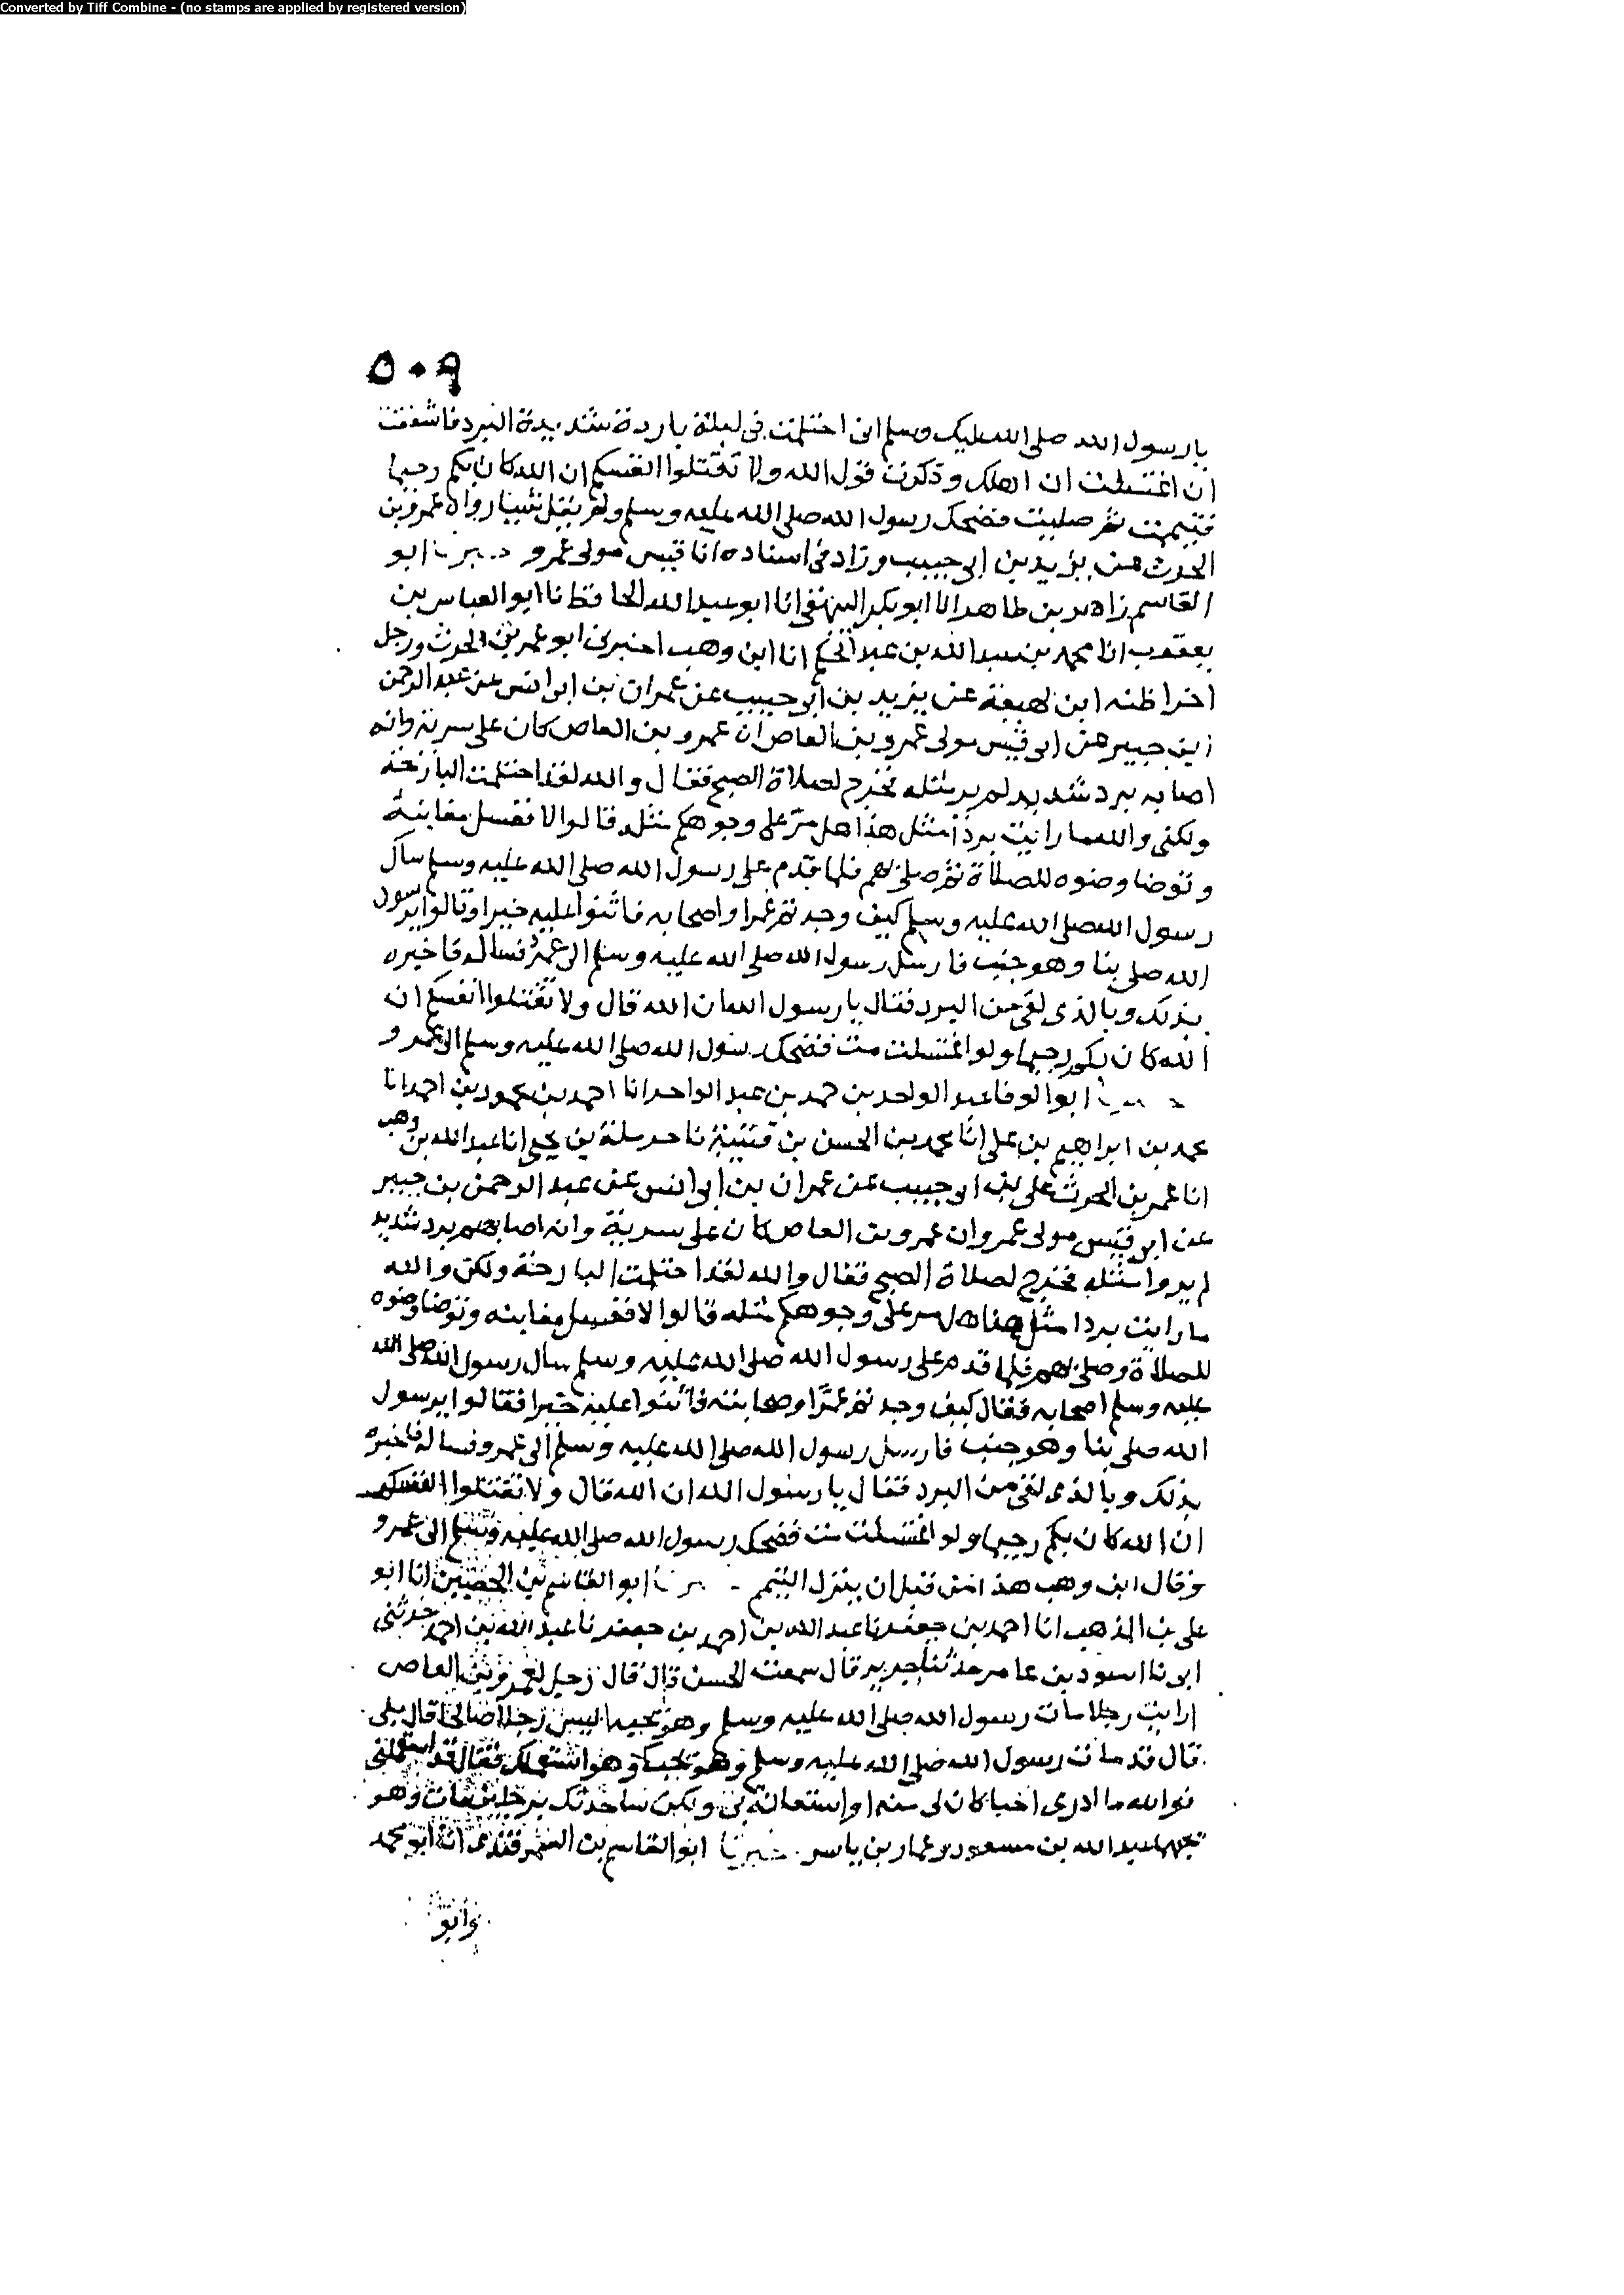 Converted by Tiff Combine - (no stamps are applied by registered version)
٥٠٩
يارسول الله صلى الله عليك وسلم انى احتلمت فى ليلة باردة شديدة البرد فاشفقت
ان اغتسلت ان اهلك وذكرت قول الله ولا تقتلوا انفسكم ان الله كان بكم رحيما
فتيممت ثم صليت فضحك رسول الله صلى الله عليه وسلم ولم يقل شيئا رواه عمرو بن
الحرث عن يزيد بن ابى حبيب وزاد فى اسناده انا قيس مولى عمرو ابو
القاسم زاهر بن طاهر انا ابو بكر البيهقى انا ابو عبد الله الحافظ نا ابو العباس بن
يعقوب انا محمد بن عبد الله بن عبد الحكم انا ابن وهب اخبرنى ابو عمر بن الحرث ورجل
اخر اظنه ابن لهيعة عن يزيد بن ابى حبيب عن عمران بن ابى انس عن عبد الرحمن
ابن جبير عن ابى قيس مولى عمرو بن العاص ان عمرو بن العاص كان على سرية وانه
اصابه برد شديد لم ير مثله فخرج لصلاة الصبح فقال والله لقد احتلمت البارحة
ولكنى والله ما رايت بردا مثل هذا هل مر على وجوهكم مثله قالوا لا فغسل مغابنه
وتوضا وضوه للصلاة ثم صلى بهم فلما قدم على رسول الله صلى الله عليه وسلم سال
رسول الله صلى الله عليه وسلم كيف وجدتم عمرا واصحابه فاثنوا عليه خيرا وقالوا يرسول
الله صلى بنا وهو جنب فارسل رسول الله صلى الله عليه وسلم الى عمرو فساله فاخبره
بذلك وبالذى لقى من البرد فقال يا رسول الله ان الله قال ولا تقتلوا انفسكم ان
الله كان بكم رحيما ولو اغتسلت مت فضحك رسول الله صلى الله عليه وسلم الى عمرو
ابو الوفا عبد الواحد بن حمد بن عبد الواحد انا احمد بن محمود بن احمد انا
محمد بن ابراهيم بن على انا محمد بن الحسن بن قتيبة نا حرملة بن يحيى انا عبد الله بن وهب
انا عمر بن الحرث على بن ابى حبيب عن عمران بن ابى انس عن عبد الرحمن بن جبير
عن ابى قيس مولى عمرو ان عمرو بن العاص كان على سرية وانه اصابهم برد شديد
لم يروا مثله فخرج لصلاة الصبح فقال والله لقد احتلمت البارحة ولكن والله
ما رايت بردا مثل هذا هل مر على وجوهكم مثله قالوا لا فغسل مغابنه وتوضا وضوه
للصلاة وصلى بهم فلما قدم على رسول الله صلى الله عليه وسلم سال رسول الله صلى الله
عليه وسلم اصحابه فقال كيف وجدتم عمرا وصحابته فاثنوا عليه خيرا فقالوا يرسول
الله صلى بنا وهو جنب فارسل رسول الله صلى الله عليه وسلم الى عمرو فساله فاخبره
بذلك وبالذى لقى من البرد فقال يا رسول الله ان الله قال ولا تقتلوا انفسكم
ان الله كان بكم رحيما ولو اغتسلت مت فضحك رسول الله صلى الله عليه وسلم الى عمرو
وقال ابن وهب هذا من قبل ان ينزل التيمم ابو القاسم بن الحصين انا ابو
على بن المذهب انا احمد بن جعفر نا عبد الله بن احمد بن جعفر نا عبد الله بن احمد حدثنى
ابى نا اسود بن عامر حدثنا جرير قال سمعت الحسن قال قال رجل لعمرو بن العاص
ارايت رجلا مات رسول الله صلى الله عليه وسلم وهو يحبه اليس رجلا صالحا قال بلى
قال قد مات رسول الله صلى الله عليه وسلم وهو يحبك وهو استعملك فقال قد استعملنى
فوالله ما ادرى احبا كان لى منه او استعانة بى ولكن ساحدثك برجلين مات وهو
يحبهما عبد الله بن مسعود وعمار بن ياسر خبرنا ابو القاسم بن السمرقندى انا ابو محمد
وابو